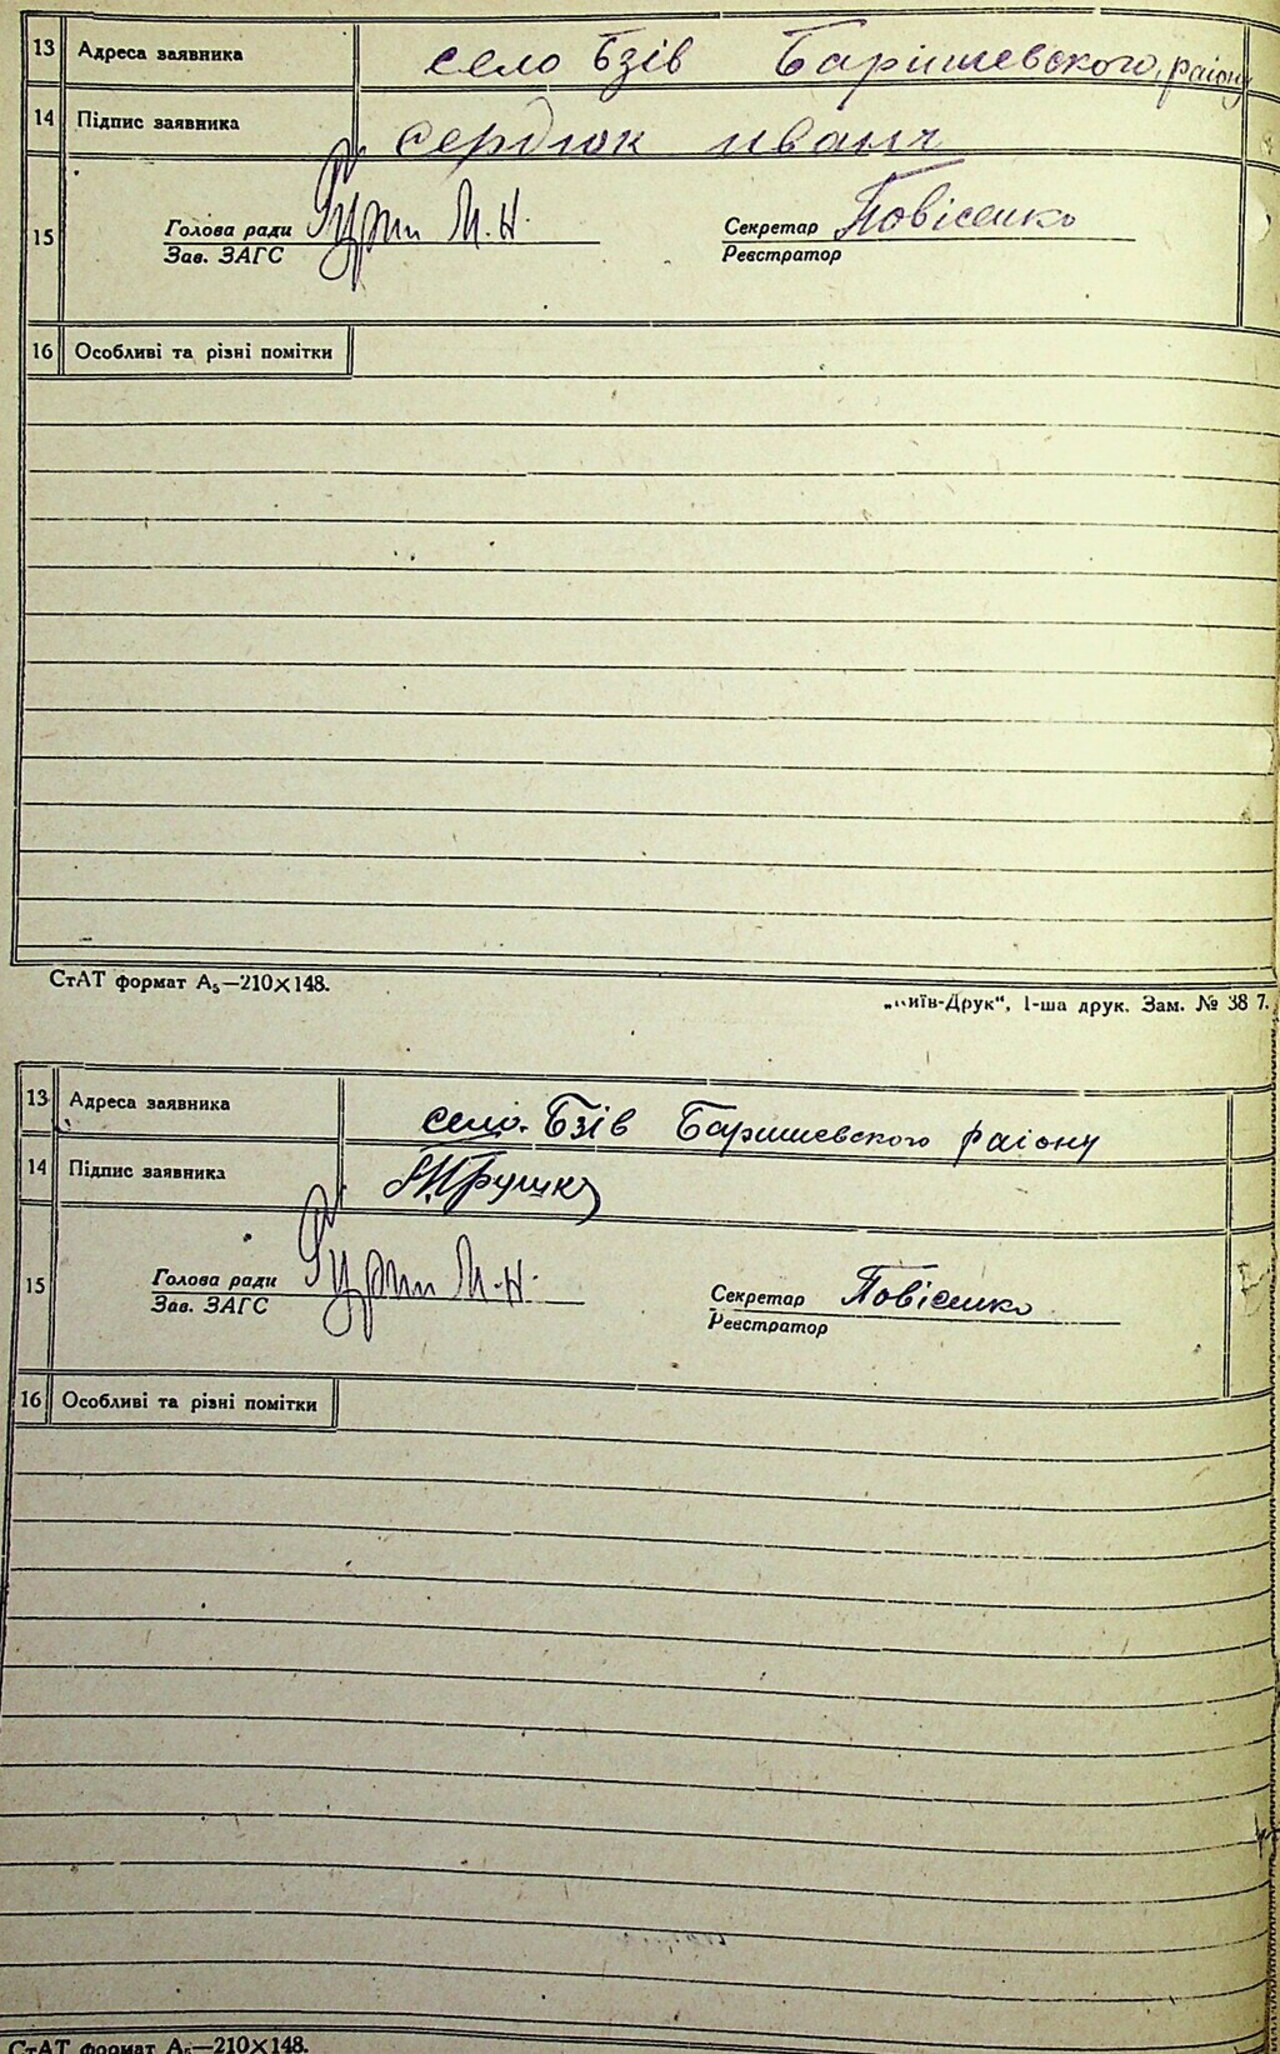 13 Адреса заявника село Бзів Баришевського району
14 Підпис заявника Сердюк иван
15 Голова ради М. Н. Секретар Повісенко
Зав. ЗАГС Реєстратор
16 Особливі та різні помітки
СтАТ формат А₅—210×148.
"Київ-Друк", 1-ша друк. Зам. № 38 7.
13 Адреса заявника село Бзів Баришевского району
14 Підпис заявника
15 Голова ради М. Н. Секретар Повісенко
Зав. ЗАГС Реєстратор
16 Особливі та різні помітки
СтАТ формат А₅—210×148.